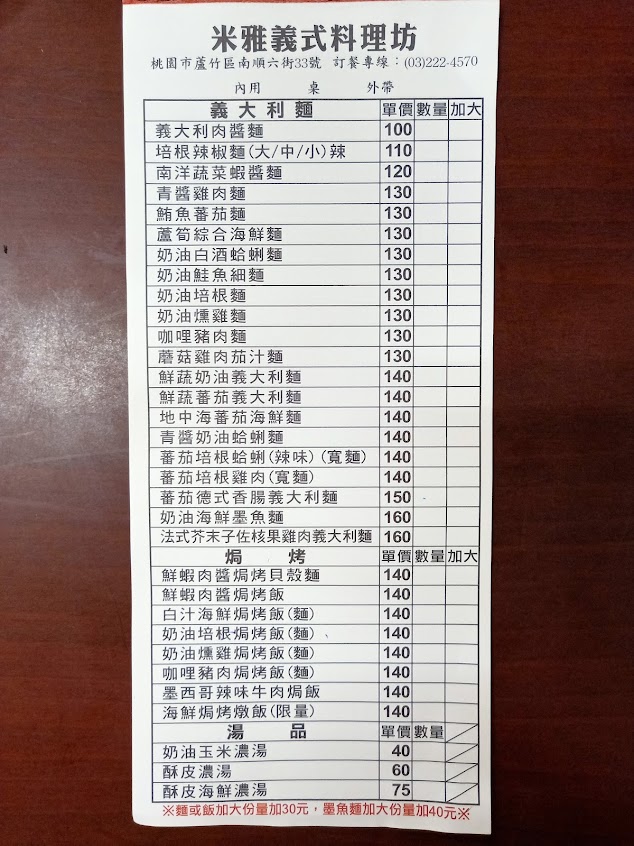 米雅義式料理坊
桃園市蘆竹區南順六街33號 訂餐專線：(03)222-4570
內用 桌 外帶
義大利麵 單價 數量 加大
義大利肉醬麵 100
培根辣椒麵(大/中/小)辣 110
南洋蔬菜蝦醬麵 120
青醬雞肉麵 130
鮪魚蕃茄麵 130
蘆筍綜合海鮮麵 130
奶油白酒蛤蜊麵 130
奶油鮭魚細麵 130
奶油培根麵 130
奶油燻雞麵 130
咖哩豬肉麵 130
蘑菇雞肉茄汁麵 130
鮮蔬奶油義大利麵 140
鮮蔬蕃茄義大利麵 140
地中海蕃茄海鮮麵 140
青醬奶油蛤蜊麵 140
蕃茄培根蛤蜊(辣味)(寬麵) 140
蕃茄培根雞肉(寬麵) 140
蕃茄德式香腸義大利麵 150
奶油海鮮墨魚麵 160
法式芥末子佐核果雞肉義大利麵 160
焗烤 單價 數量 加大
鮮蝦肉醬焗烤貝殼麵 140
鮮蝦肉醬焗烤飯 140
白汁海鮮焗烤飯(麵) 140
奶油培根焗烤飯(麵) 140
奶油燻雞焗烤飯(麵) 140
咖哩豬肉焗烤飯(麵) 140
墨西哥辣味牛肉焗飯 140
海鮮焗烤燉飯(限量) 140
湯品 單價 數量
奶油玉米濃湯 40
酥皮濃湯 60
酥皮海鮮濃湯 75
※麵或飯加大份量加30元，墨魚麵加大份量加40元※